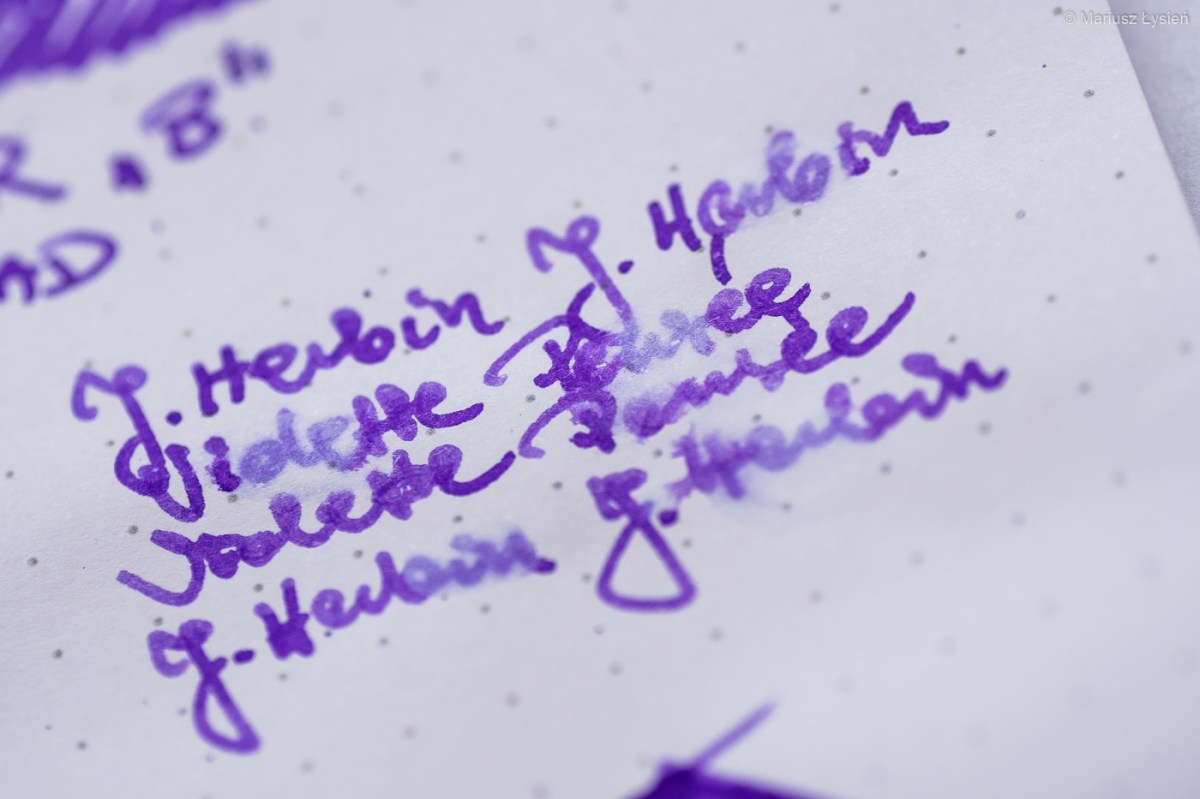 © Mariusz Łysień
R "B"
AD
J. Herbin J. Herbin
Violette Pensée
Violette Pensée
J. Herbin J. Herbin